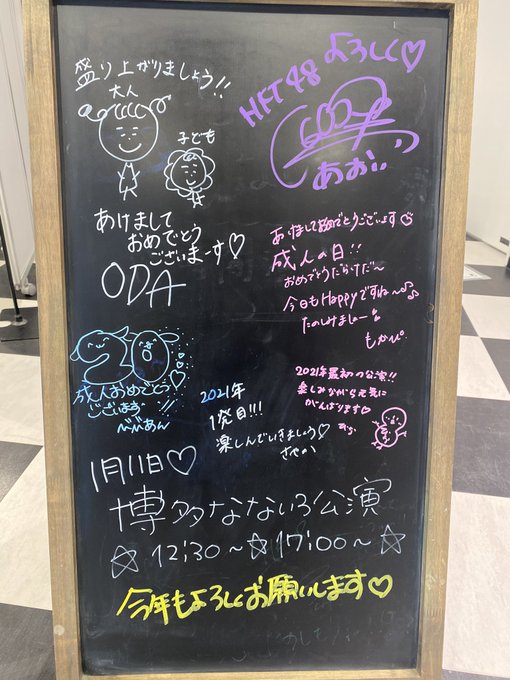 盛り上がりましょう!!
大人
子ども
HKT48 よろしく♡
あおい
あけまして
おめでとう
ございまーす♡
ODA
あけましておめでとうございます
成人の日!!
おめでとうだらけだ〜
今日もHappyですね〜♪♪
たのしみましょー!
もかぴ
20
成人おめでとう
ございます
べべあん
2021年
1発目!!!
楽しんでいきましょう♡
さやか
2021年最初の公演!!
楽しみながら元気に
がんばります♡
1月11日♡
博多なないろ公演
☆ 12:30〜☆17:00〜☆
今年もよろしくお願いします♡